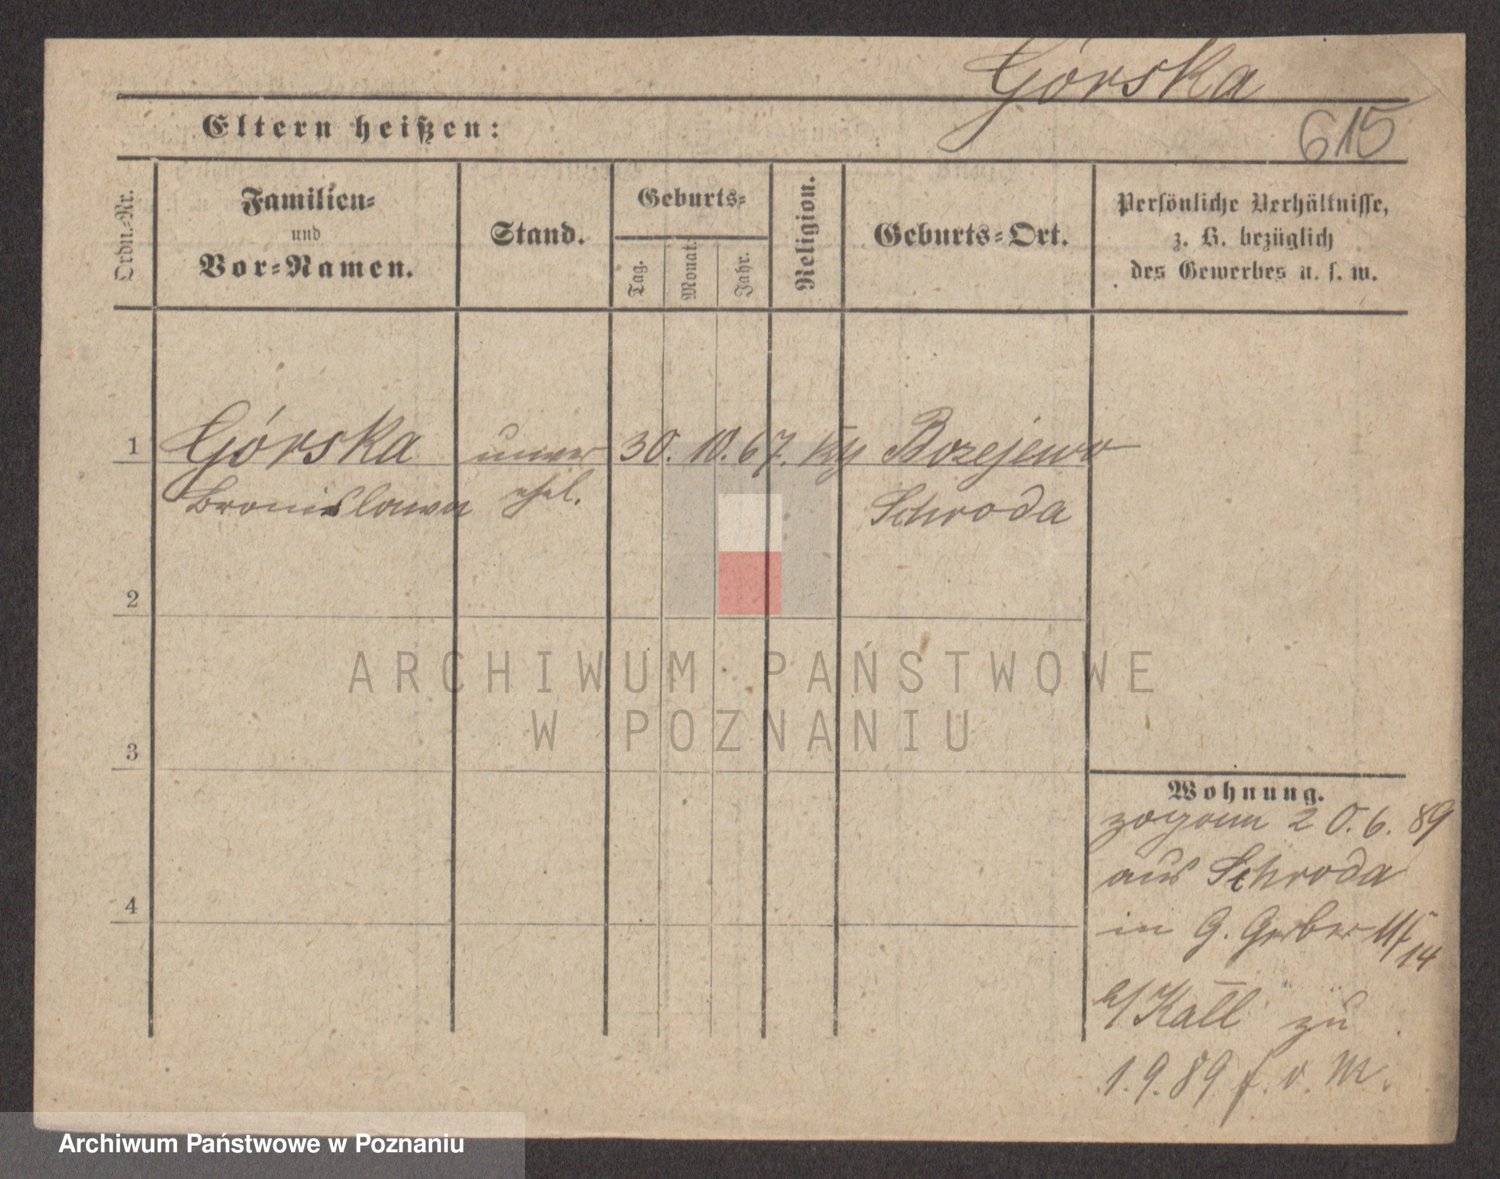 Górska
615
Eltern heißen:
Ordn.-Nr.
Familien-
und
Vor-Namen.
Stand.
Geburts-
Tag.
Monat.
Jahr.
Religion.
Geburts-Ort.
Persönliche Verhältnisse,
z. B. bezüglich
des Gewerbes u. s. w.
1
Górska
Bronislawa
unver
ehel.
30. 10. 67.
Bozejewo
Schroda
2
3
4
Wohnung.
20. 6. 89
aus Schroda
in G. Gerber
14
zu
1.9.89 f. v. M.
ARCHIWUM PAŃSTWOWE
W POZNANIU
Archiwum Państwowe w Poznaniu